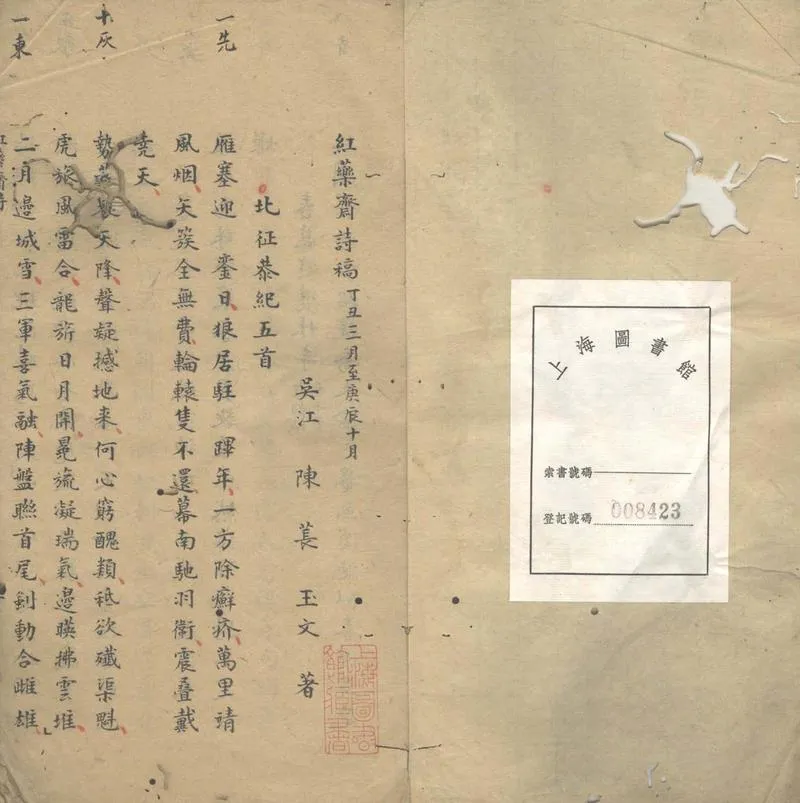 紅藥齋詩稿 丁丑三月至庚辰十月
吳江 陳萇 玉文 著
北征恭紀五首
一先
雁塞迎鑾日狼居駐蹕年一方除癬疥萬里靖
風烟矢簇全無費輪轅隻不還幕南馳羽衛震疊戴
堯天
十灰
勢天降聲疑撼地来何心窮醜類秪欲殲渠魁
虎旅風雷合龍旂日月開晃旒凝瑞氣邊暎拂雲堆
一東
二月邊城雪三軍喜氣融陣盤聯首尾劍動合雌雄
上海圖書館
索書號碼
登記號碼 008423
上海圖書館藏書